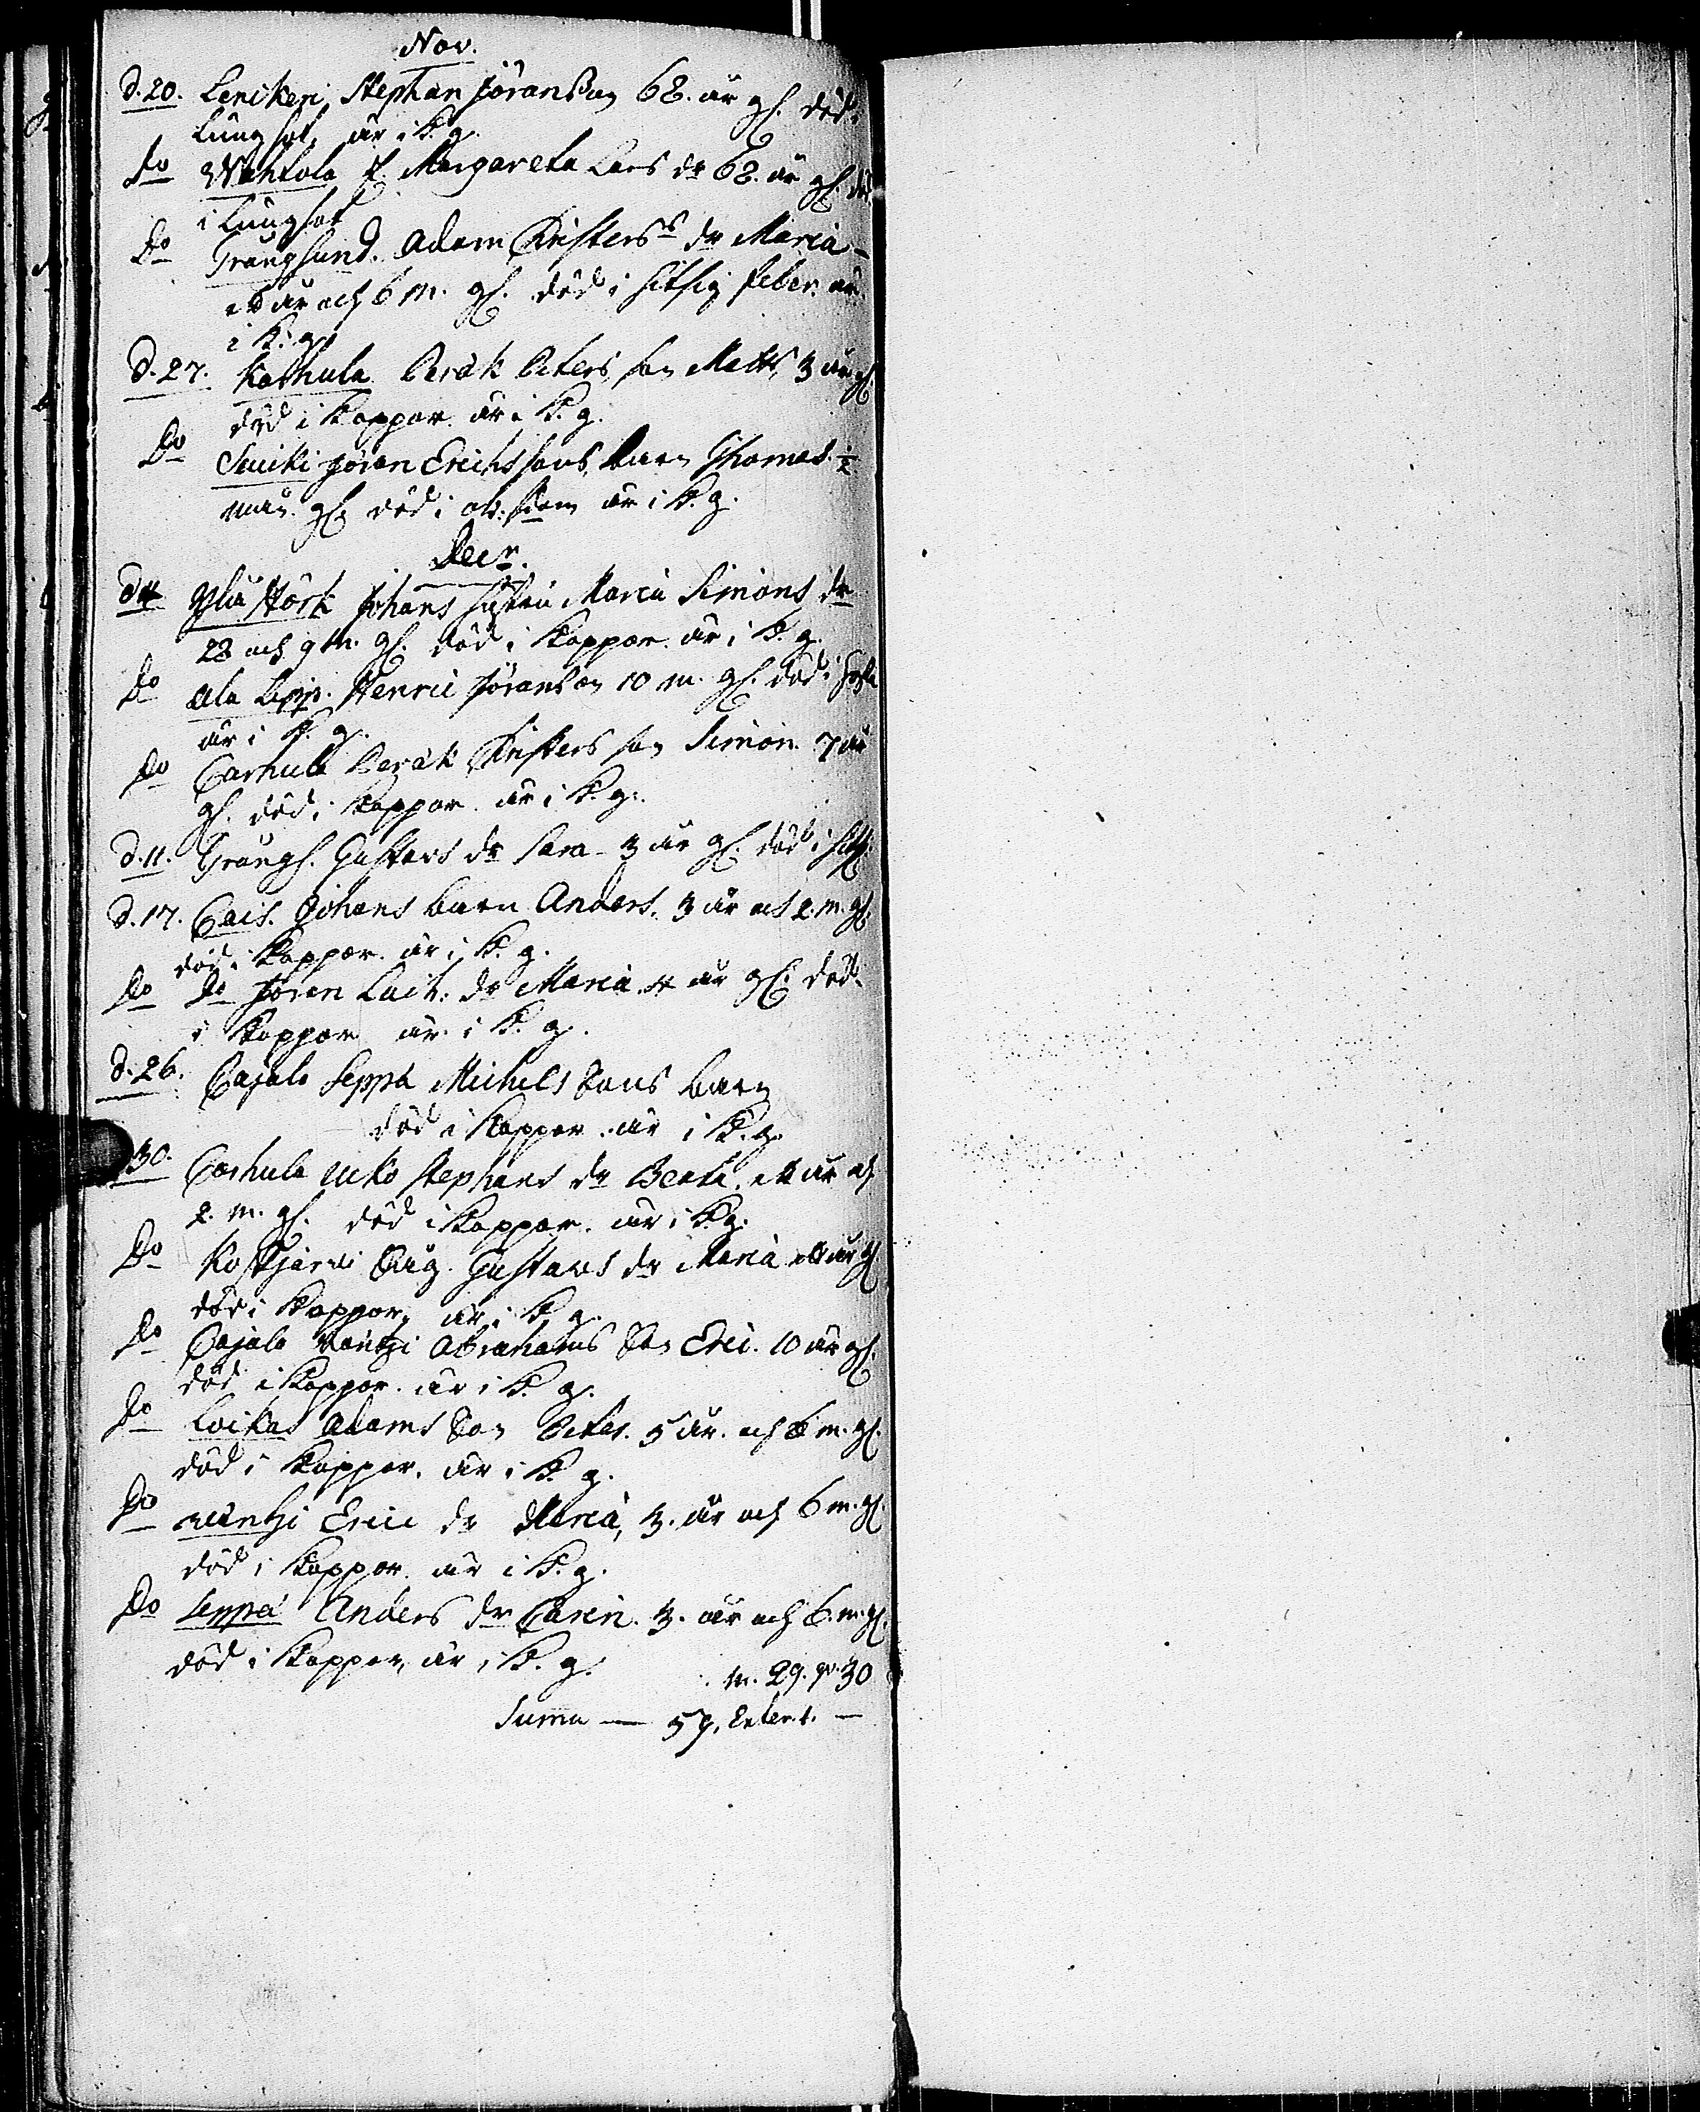 Nov.
d. 20. Lenikeri Stephan Jöranson 68. år gl. död i
lungsot, är i K. g.
do Wahlola E. Margareta Lars dr 68. år gl. död
i lungsot
Do Trångsund. Adam Christers dr Maria
ett år och 6 m. gl. död i hitsig feber. är
i K. g.
d. 27. Karhula Perä k Peters son Matts, 3 år gl.
död i koppor är i K. g.
Do Suuiki Jöran Erichssons barn Thomas ½
mån. gl. död i är i K. g.
Decr.
d 4 Johans hustru Maria Simons dr
28 och 9 m. gl. död i koppor är i K. g.
do Ala Lepp. Henric Jöranson 10 m. gl. död i
är i K. g.
do Carhula Perä k Christers son Simon 7 år
gl. död i koppor är i K. g.
d. 11. Trångs. Gustavs dr Sara 3 år gl. död i hits.
d. 17. Cais. Johans barn Anders. 3 år och 2. m. gl.
död i koppor. är i K. g.
do do Jöran Lait: dr Maria 4 år gl. död
i koppor är i K. g.
d. 26. Cajala Seppä Michels sons barn
död i koppor. är i K. g.
30. Carhula Ucko Stephans dr Beata. ett år och
2. m. gl. död i koppor. är i K. g.
Do Koskjärvi Aug. Gustavs dr Maria ett år gl
död i koppor, är i K. g.
do Cajala Abrahams son Eric. 10 år gl.
död i koppor. är i K. g.
do Loikas Adams son Peter. 5 år. och 6 m. gl.
död i koppor. är i K. g.
Do Eric dr Maria, 3. år och 6 m. gl.
död i koppor. är i K. g.
Do Seppä Anders dr Carin. 3. år och 6. m. gl.
död i koppor, är i K. g.
m. 29. qv. 30
Suma — 57. Exter. 1. —